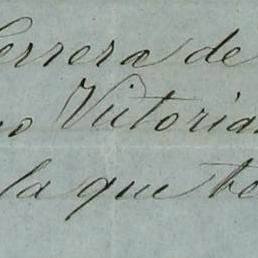 Herrera de
no Victoria
la que te